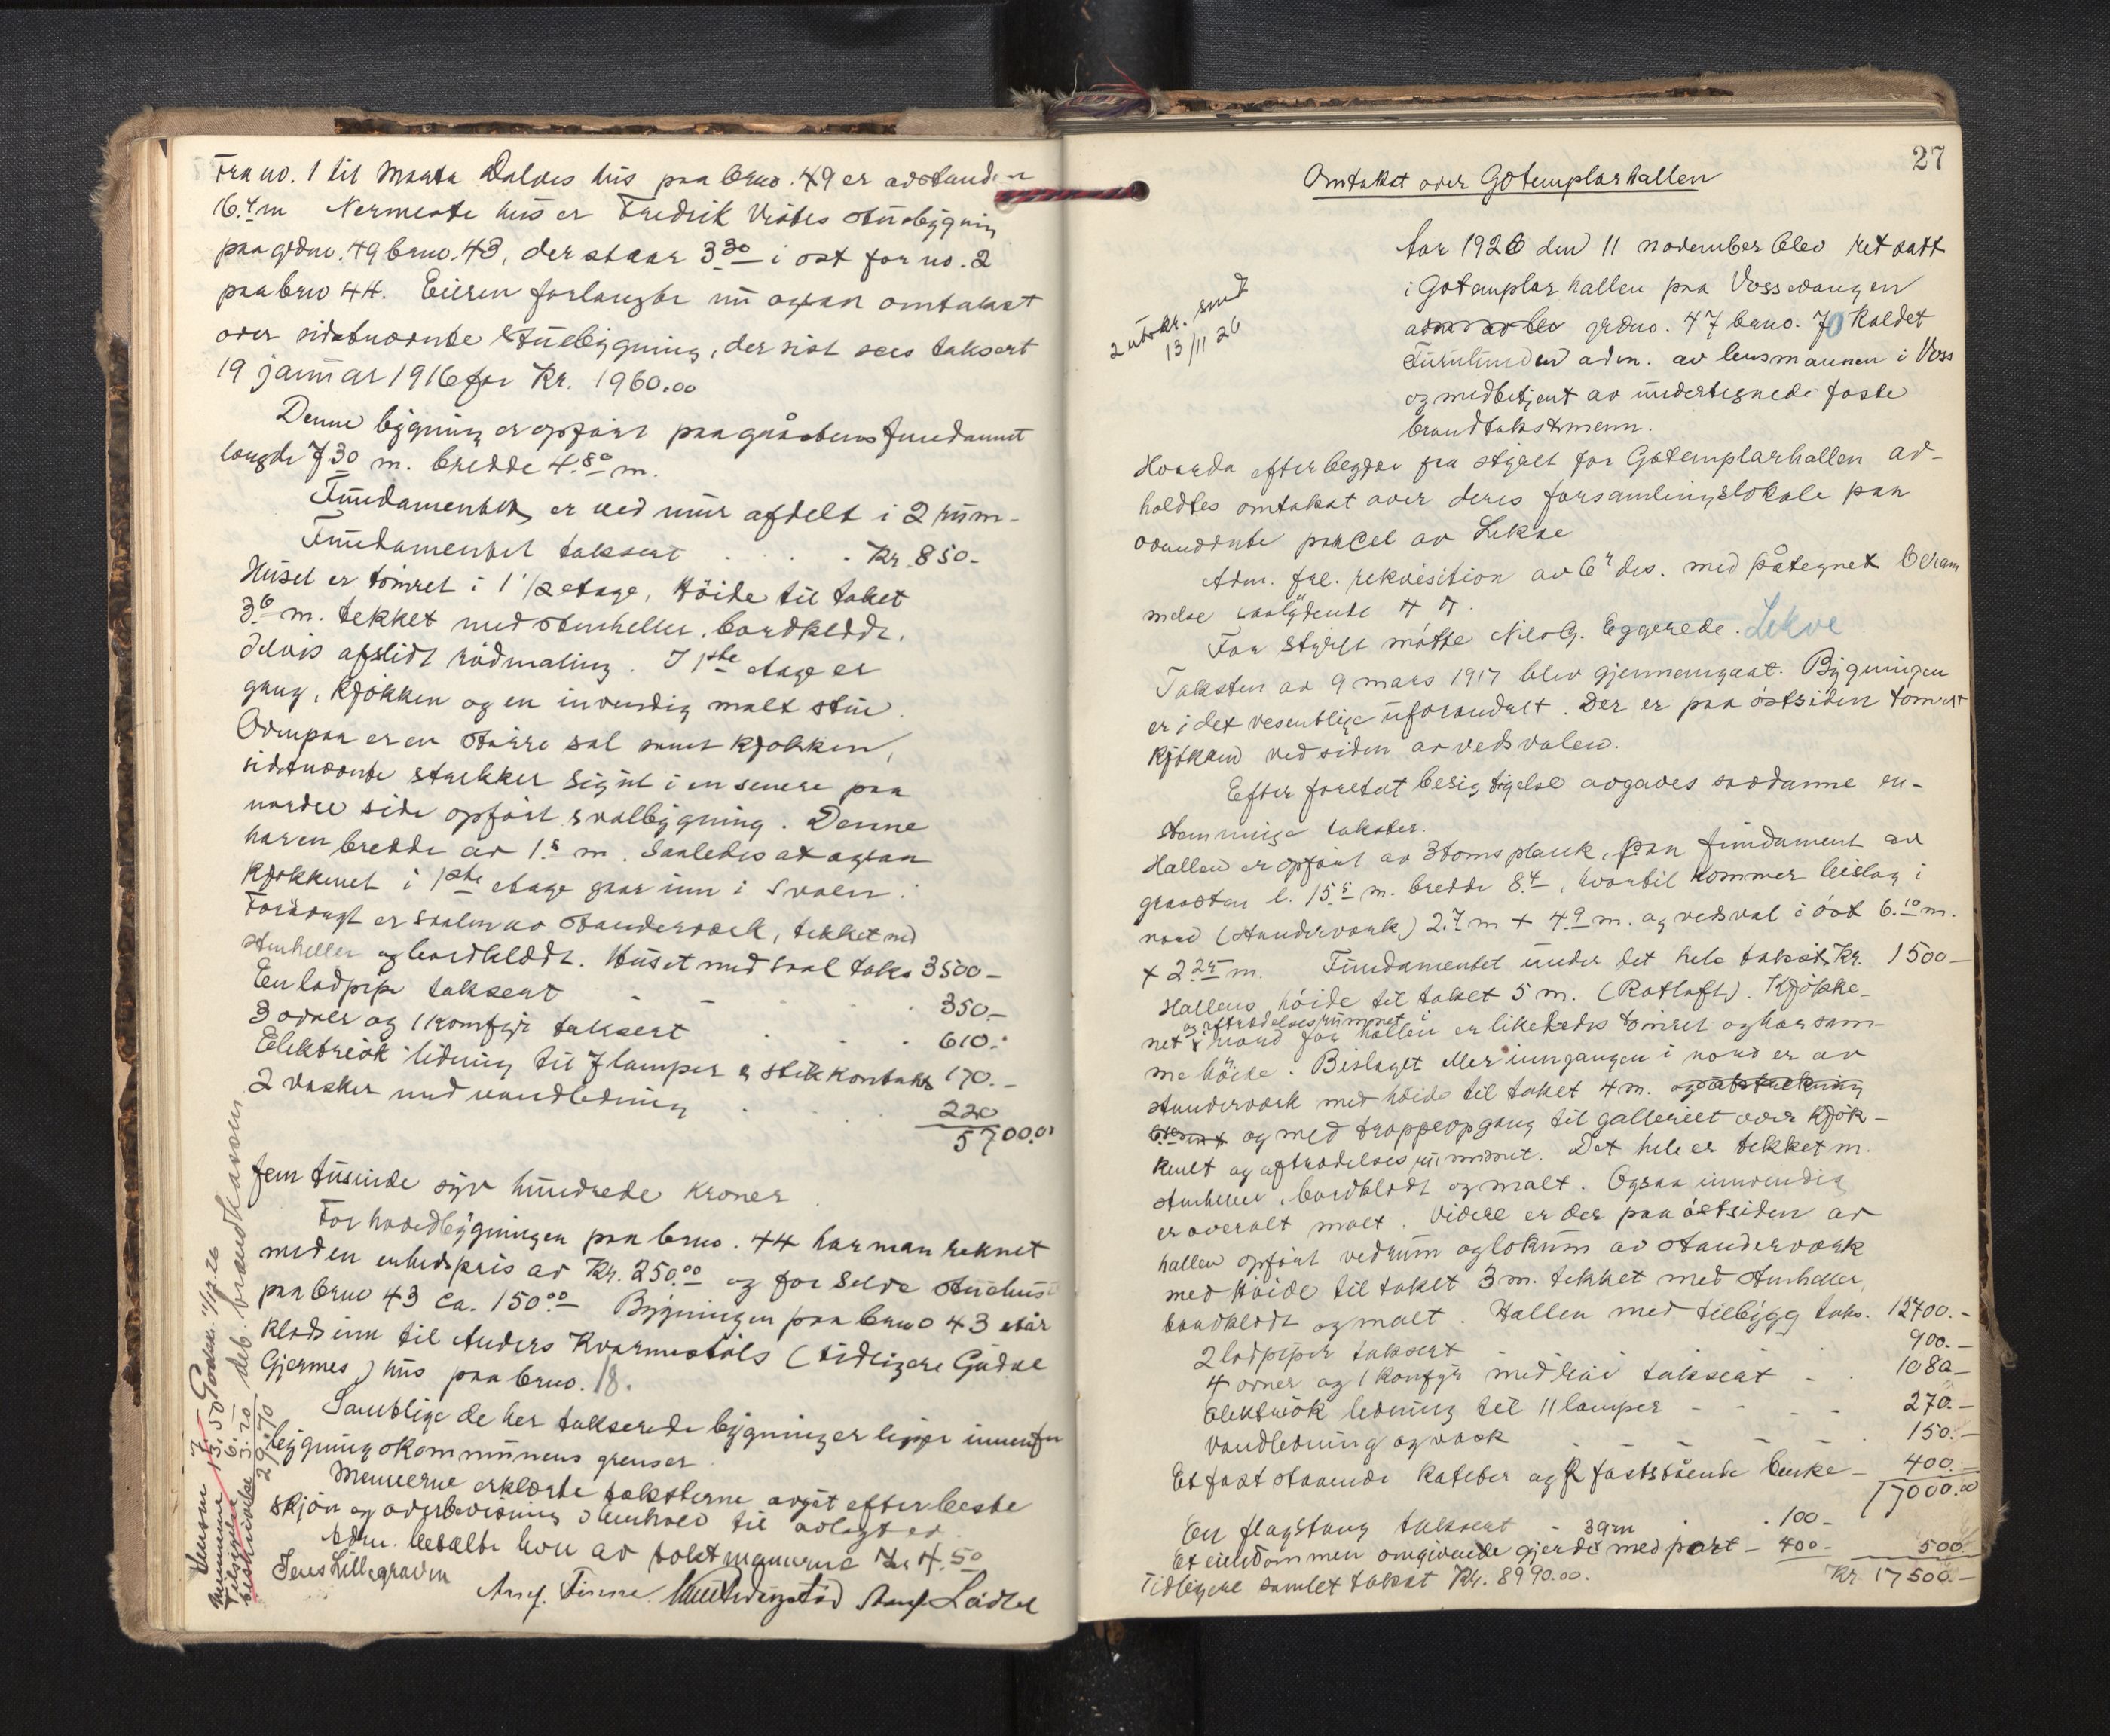 Fra no. 1 til Marta Dalves hus paa brno. 49 er avstanden
16.4 m Nermeste hus er Fredrik Vistes stuebygning
paa grdno. 49 brno. 43, der staar 3.30 i ost for no. 2
paa brno 44. Eieren forlangte nu ogsaa omtakst
over sidstnævnte stuebygning, der sist sees taksert
19 januar 1916 for Kr. 1960.00
Denne bygning er opført paa gråstensfundament
længde 7.30 m. bredde 4.80 m.
Fundamentet er ved mur afdelt i 2 rum -
Fundamentet taksert . . . Kr. 850-
Huset er tømret i 1 1/2 etage, Höide til taket
3.6 m. tekket med stenheller, bordkledt,
delvis afslidt rödmaling. I 1ste etage er
gang, kjøkken og en invendig malt stue.
Ovenpaa er en større sal samt kjøkken,
sidstnævnte strekker sig ut i en senere paa
nordre side opført svalbygning. Denne
har en bredde av 1.5 m. Saaledes at ogsaa
kjøkkenet i 1ste etage gaar inn i svalen.
Forövrigt er svalen av standerverk, tekket med
stenheller og bordklædt. Huset med sval taks 3500-
En ladpipe taksert - - 350.-
3 ovner og 1 komfyr taksert . . . 610.-
Elektrisk ledning til 7 lamper & stikkontakt 170.-
2 vasker med vandledning . . 220
5700.00
fem tusinde syv hundrede kroner.
For hovedbygningen paa brno. 44 har man reknet
med en enhedspris av Kr. 250.00 og for selve stuehuset
paa brno 43 ca. 150.00 - Bygningen paa brno 43 står
klods inn til Anders Kvarmestöls (tidligere Gudve
Gjermes) hus paa brno. 18.
Samtlige de her takserede bygninger ligger innenfor
bygningskommunens grenser.
Mennerne erklærte taksterne avgit efter beste
skjön og overbevisning i henhold til avlagt ed.
Adm. betalte hver av takstmennerne Kr 4.50
Jens Lillegraven
Ansg. Finne.
Godkj. 11/12.26
deb. brandkassen
29.70
27
Omtakst over Gotemplarhallen
Aar 1926 den 11 november blev ret satt
i Gotemplarhallen paa Vossevangen
grdno. 47 brno. 70 kaldet
Furulunden adm. av lensmannen i Voss
og medbetjent av undertegnede faste
brandtakstmenn.
2 utskr. sendt
13/11 26
Hvorda efter begjær fra styret for Gotemplarhallen av-
holdtes omtakst over deres forsamlingslokale paa
ovennævnte parcel av Lekve
Adm. frl. rekvisition av 6" ds. med påtegnet beram
melse saalydende # #.
For styret møtte Nils G. Eggerede. Lekve
Taksten av 9 mars 1917 blev gjennemgaat. Bygningen
er i det vesentlige uforandret. Der er paa östsiden tömret
kjøkken ved siden av vedsvalen.
Efter foretat besigtigelse avgaves saadanne en-
stemmige takster.
Hallen er opført av 3 toms plank, paa fundament av
graasten l. 15.5 m. bredde 8.4, hvortil kommer bislag i
nord (standerverk) 2.7 m + 4.9 m. og vedsval i öst 6.10 m.
+ 2.25 m. Fundamentet under det hele takst Kr. 1500-
Hallens höide til taket 5 m. (Rotloft). Kjøkke-
og aftrædelsesrummet i
net nord for hallen er likeledes tömret og har sam-
me höide. Bislaget eller inngangen i nord er av
standerverk med höide til taket 4 m.
og med trappeopgang til galleriet over kjök-
kenet og aftrædelsesrummet. Det hele er tekket m.
stenheller, bordklædt og malt. Ogsaa innvendig
er overalt malt. Videre er der paa östsiden av
hallen opført vedrum og lokum av standerverk
med höide til taket 3 m. tekket med stenheller,
bordklædt og malt. Hallen med tilbygg taks. 12700.-
2 ladpiper taksert 900.-
4 ovner og 1 komfyr med rör taksert - . 1080-
Elektrisk ledning til 11 lamper - - - - 270.-
Vandledning og vask - - - - 150.-
Et fast staaende kateder og 2 faststående benke - 400.-
17000.00
En flagstang taksert - . 100-
39 m
Et eiendommen omgivende gjerde med port - 400- 500
Tidligere samlet takst Kr. 8990.00. Kr. 17500.-